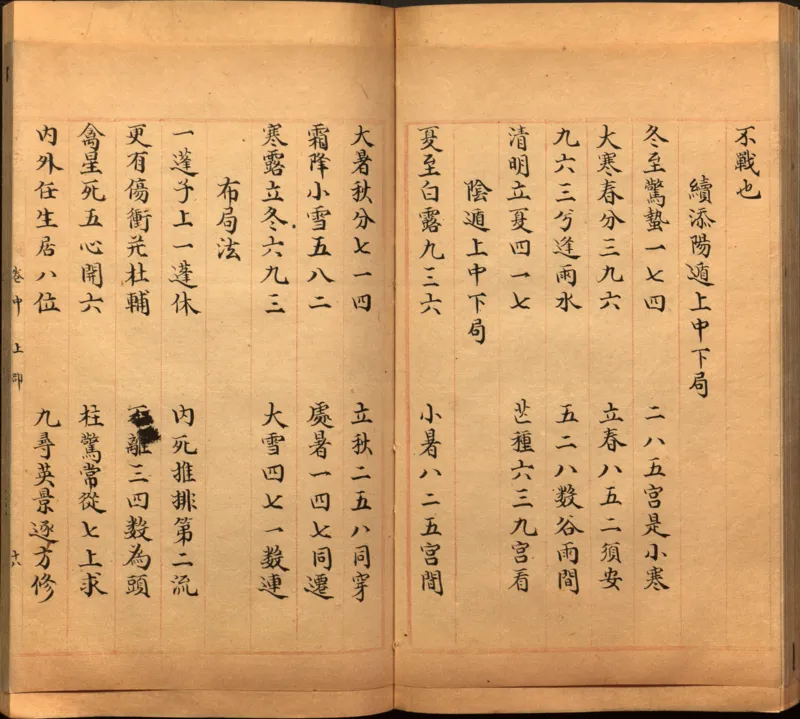 不戰也
續添陽遁上中下局
冬至驚蟄一七四 二八五宮是小寒
大寒春分三九六 立春八五二須安
九六三兮逢雨水 五二八数谷雨間
清明立夏四一七 芒種六三九宮看
陰遁上中下局
夏至白露九三六 小暑八二五宮間
大暑秋分七一四 立秋二五八同穿
霜降小雪五八二 處暑一四七同遷
寒露立冬六九三 大雪四七一数連
布局法
一蓬子上一蓬休 内死推排第二流
更有傷衝并杜輔 離三四数為頭
禽星死五心開六 柱驚常從七上求
内外任生居八位 九尋英景逐方修
卷中 上